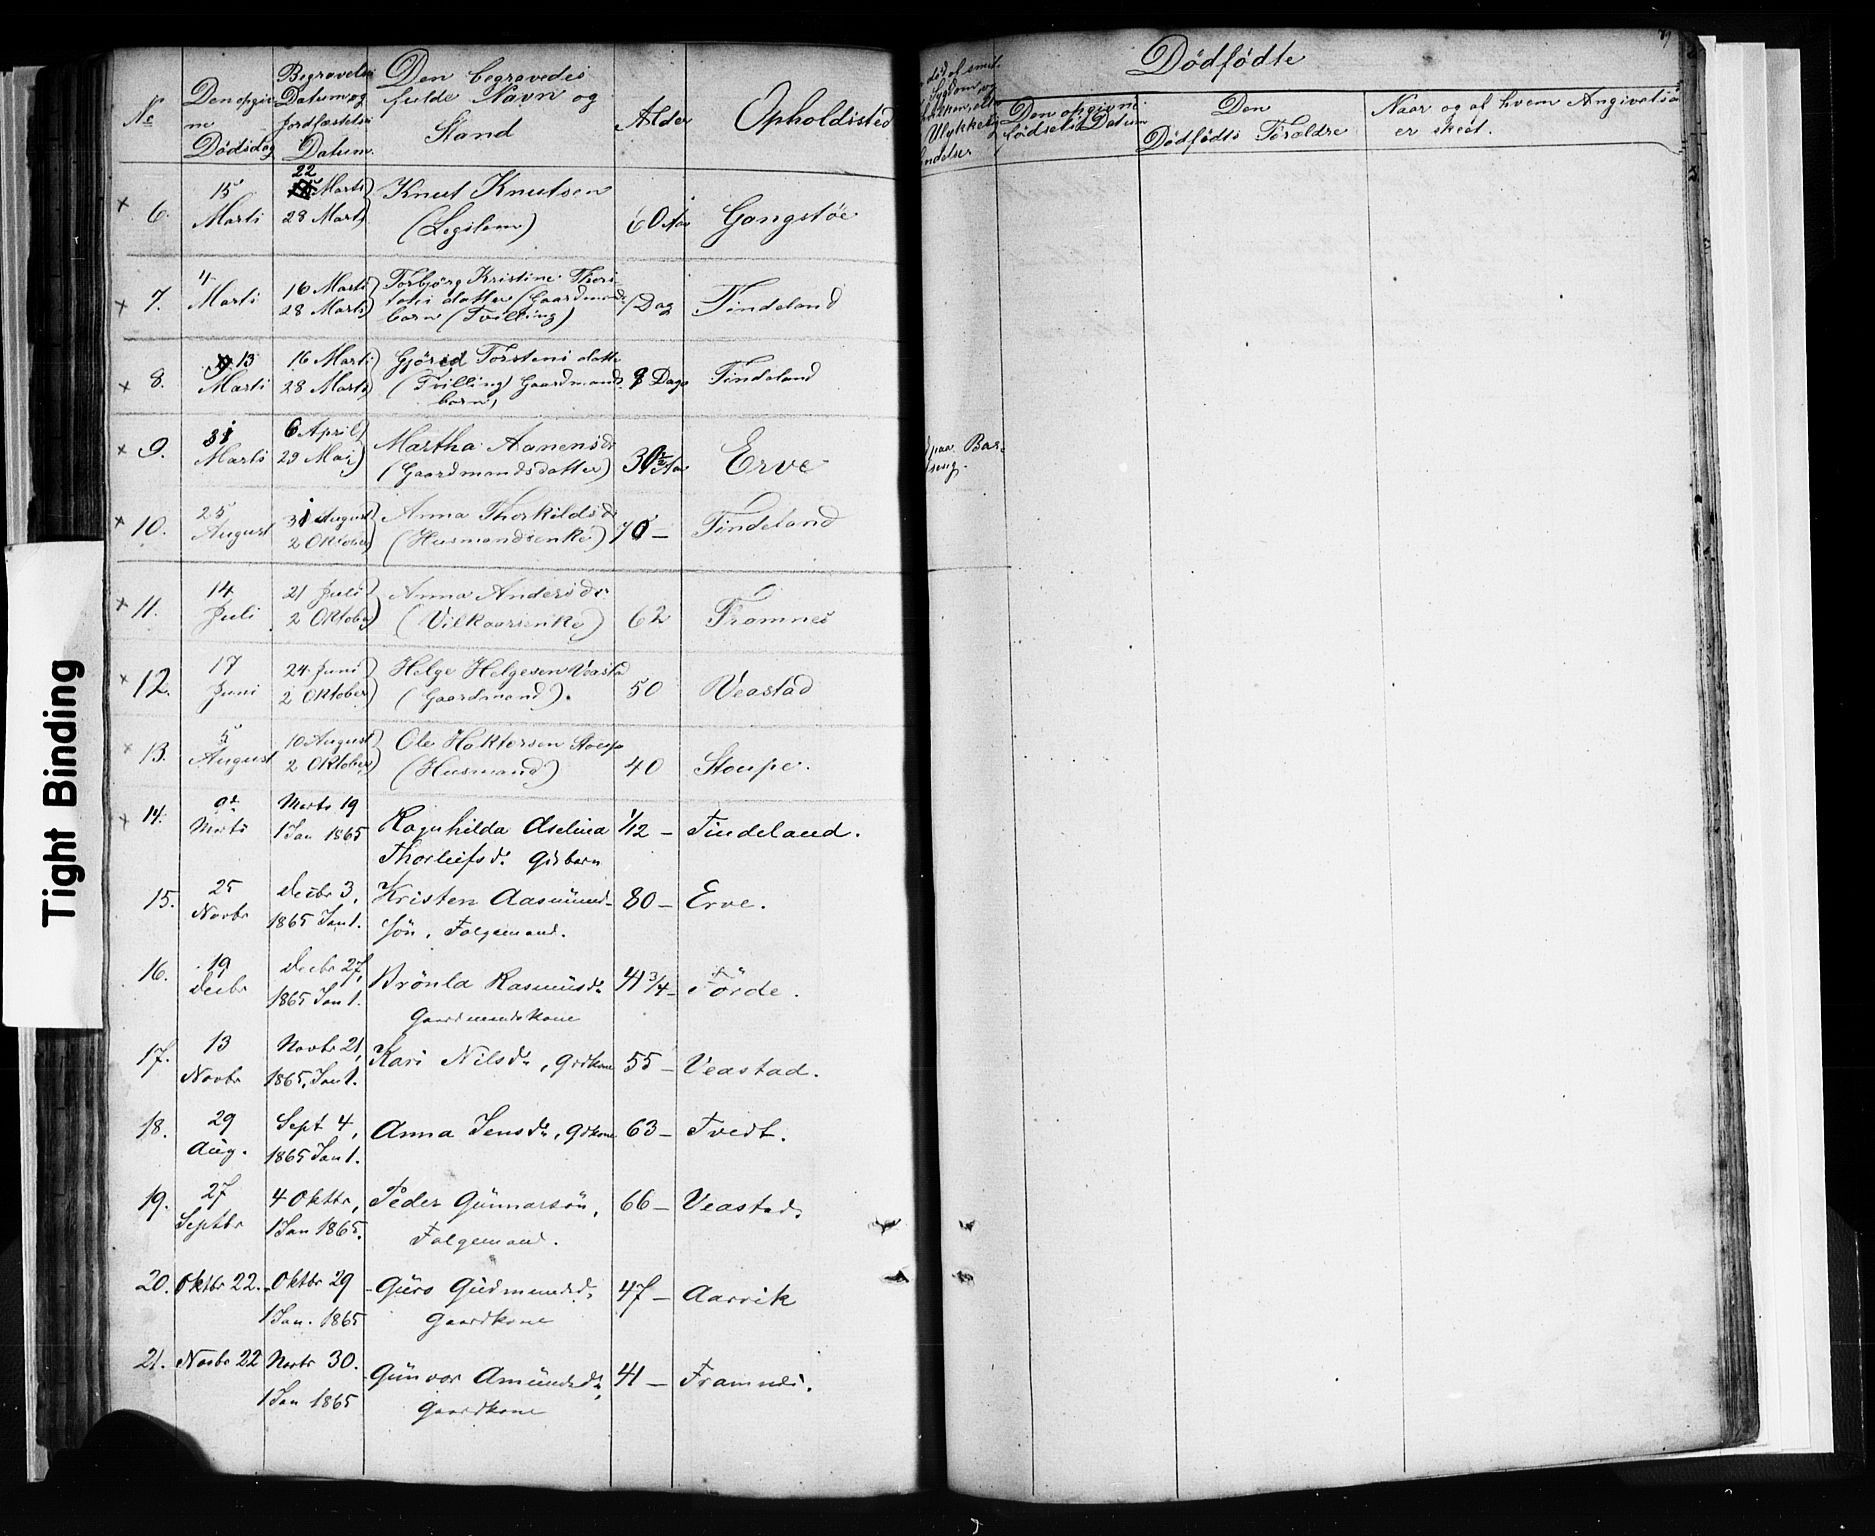 Tight Binding
No
Den opgivne
Dödsdag
Begravelses
Datum og
Jordfæstelses
Datum.
Den begravedes
fulde Navn og
Stand
Alder
Opholdssted
6.
15
Marti
22 Marti
28 Marts
Knut Knutsen
(Legslem)
60 Aar
Gangstøe
7.
4
Marti
16 Marti
28 Marts
Torbjørg Kristine
datter (Gaardmands
barn (Tvilling)
1 Dag
Tindeland
8.
13
Marti
16 Marti
28 Marts
Gjöred Torstens datter
(Tvilling) Gaardmands
barn,
9 Dage
Tindeland
9.
31
Marts
6 April
29 Mai
Martha Aanensdr
(Gaardmandsdatter)
30 1/2 Aar
Erve
10.
25
August
31 August
2 Oktober
Anna Thorkildsdr
(Husmandsenke)
70 –
Tindeland
11.
14
Juli
21 Juli
2 Oktober
Anna Andersdr
(Vilkaarsenke)
62
Framnes
12.
17
Juni
24 Juni
2 Oktober
Helge Helgesen Veastad
(Gaardmand).
50
Veastad
13.
5
August
10 August
2 Oktober
Ole Haktorsen Stoupe
(Husmand)
40
Stoupe.
14.
Marts
Marts 19
1 Jan 1865
Ragnhilda Aselina
Thorleifsd. Gdsbarn
1/12 –
Tindeland.
15.
25
Novbr
Decbr 3,
1865 Jan 1.
Kristen Aasmund-
sön, Folgemand.
80 –
Erve.
16.
19
Decbr
Decbr 27,
1865 Jan 1.
Brönla Rasmusdr
Gaardmandskone
41 3/4 –
Förde.
17.
13
Novbr
Novbr 21,
1865, Jan 1.
Kari Nilsdr, Grdkone
55 –
Veastad.
18.
29
Aug.
Sept 4,
1865 Jan 1.
Anna Jensdr, Gdkone
63 –
Tvedt.
19.
27
Septbr
4 Oktbr,
1 Jan 1865.
Peder Gunnarsön,
Folgemand.
66 –
Veastad.
20.
Oktbr 22.
Oktbr 29
1 Jan. 1865
Guro Gudmundsd.
Gaardkone
47 –
Aarvik
21.
Novbr 22
Novbr 30.
1 Jan 1865
Gunvor Amundsdr,
Gaardkone
41 –
Framnes.
Dödfödte
Den opgivne
Födselstid Datum
Den
Dödfödts Foræld­re
Naar og af hvem Angivelsen
er skeet.
paa Bar-
selseng.